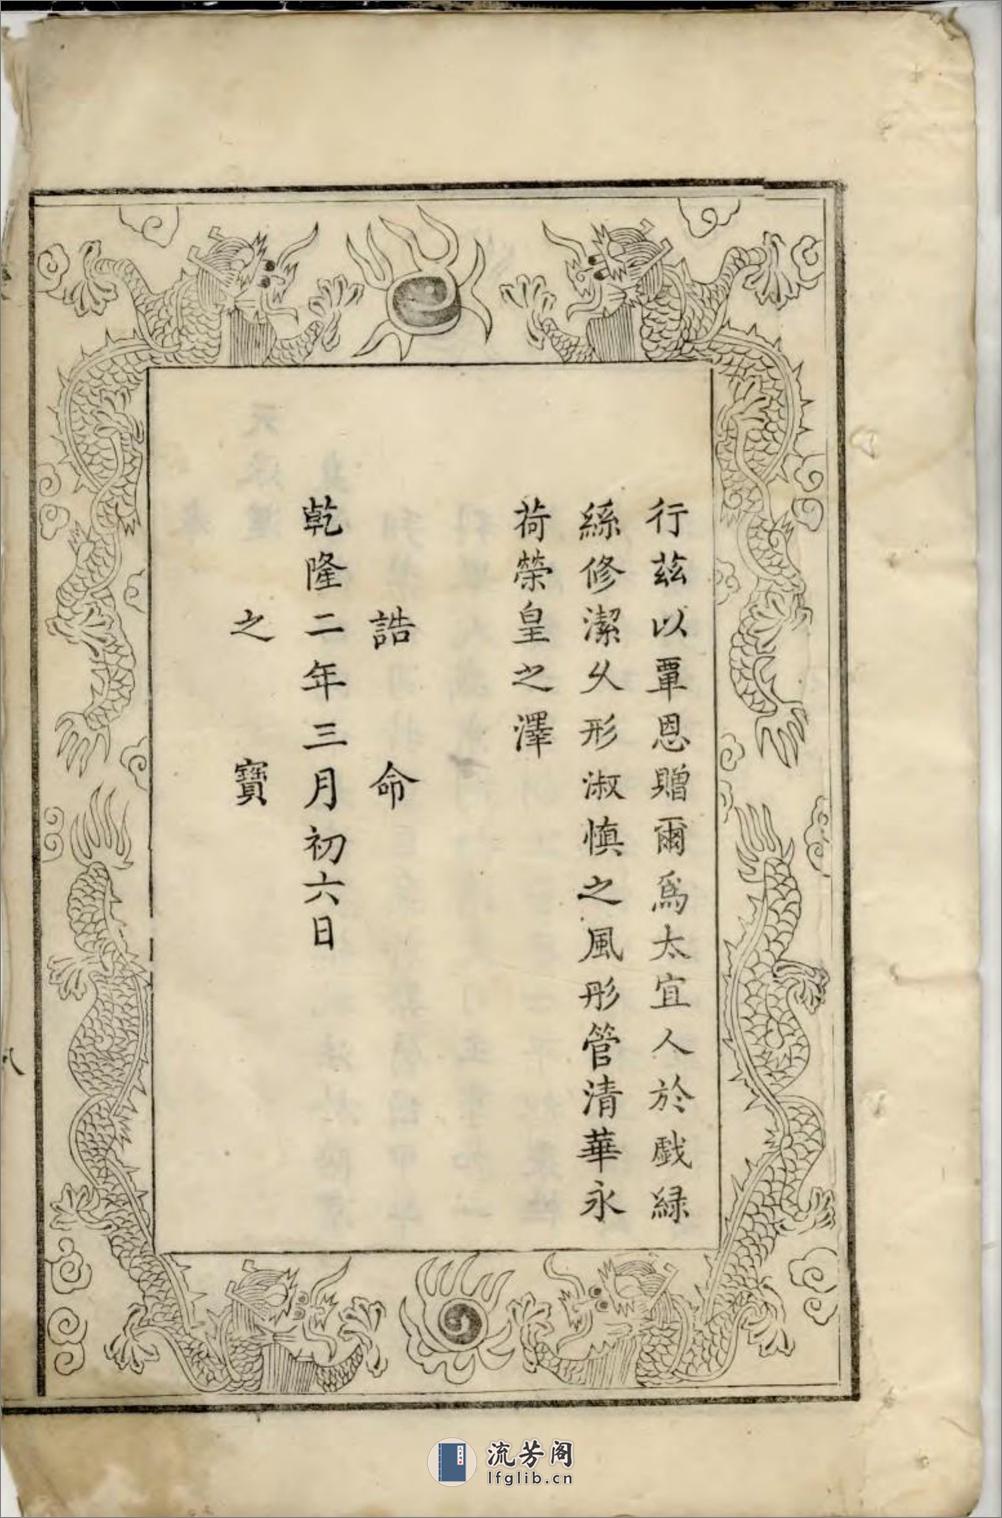 行茲以覃恩贈爾爲太宜人於戲緑
絲修潔乆形淑慎之風彤管清華永
荷榮皇之澤
誥命
乾隆二年三月初六日
之寶
八
流芳阁
lfglib.cn